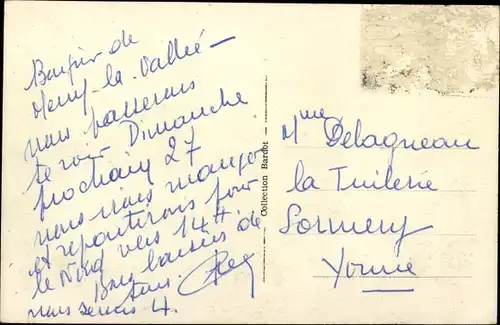 Bonjour de
Merry-la-Vallée -
nous passerons
te voir Dimanche
prochain 27
nous nous
et repartirons pour
le Nord vers 14 H.
Bons baisers de
nous
nous serons 4.
Collection Bardot -
Mme Delagneau
la Tuilerie
Sormery
Yonne